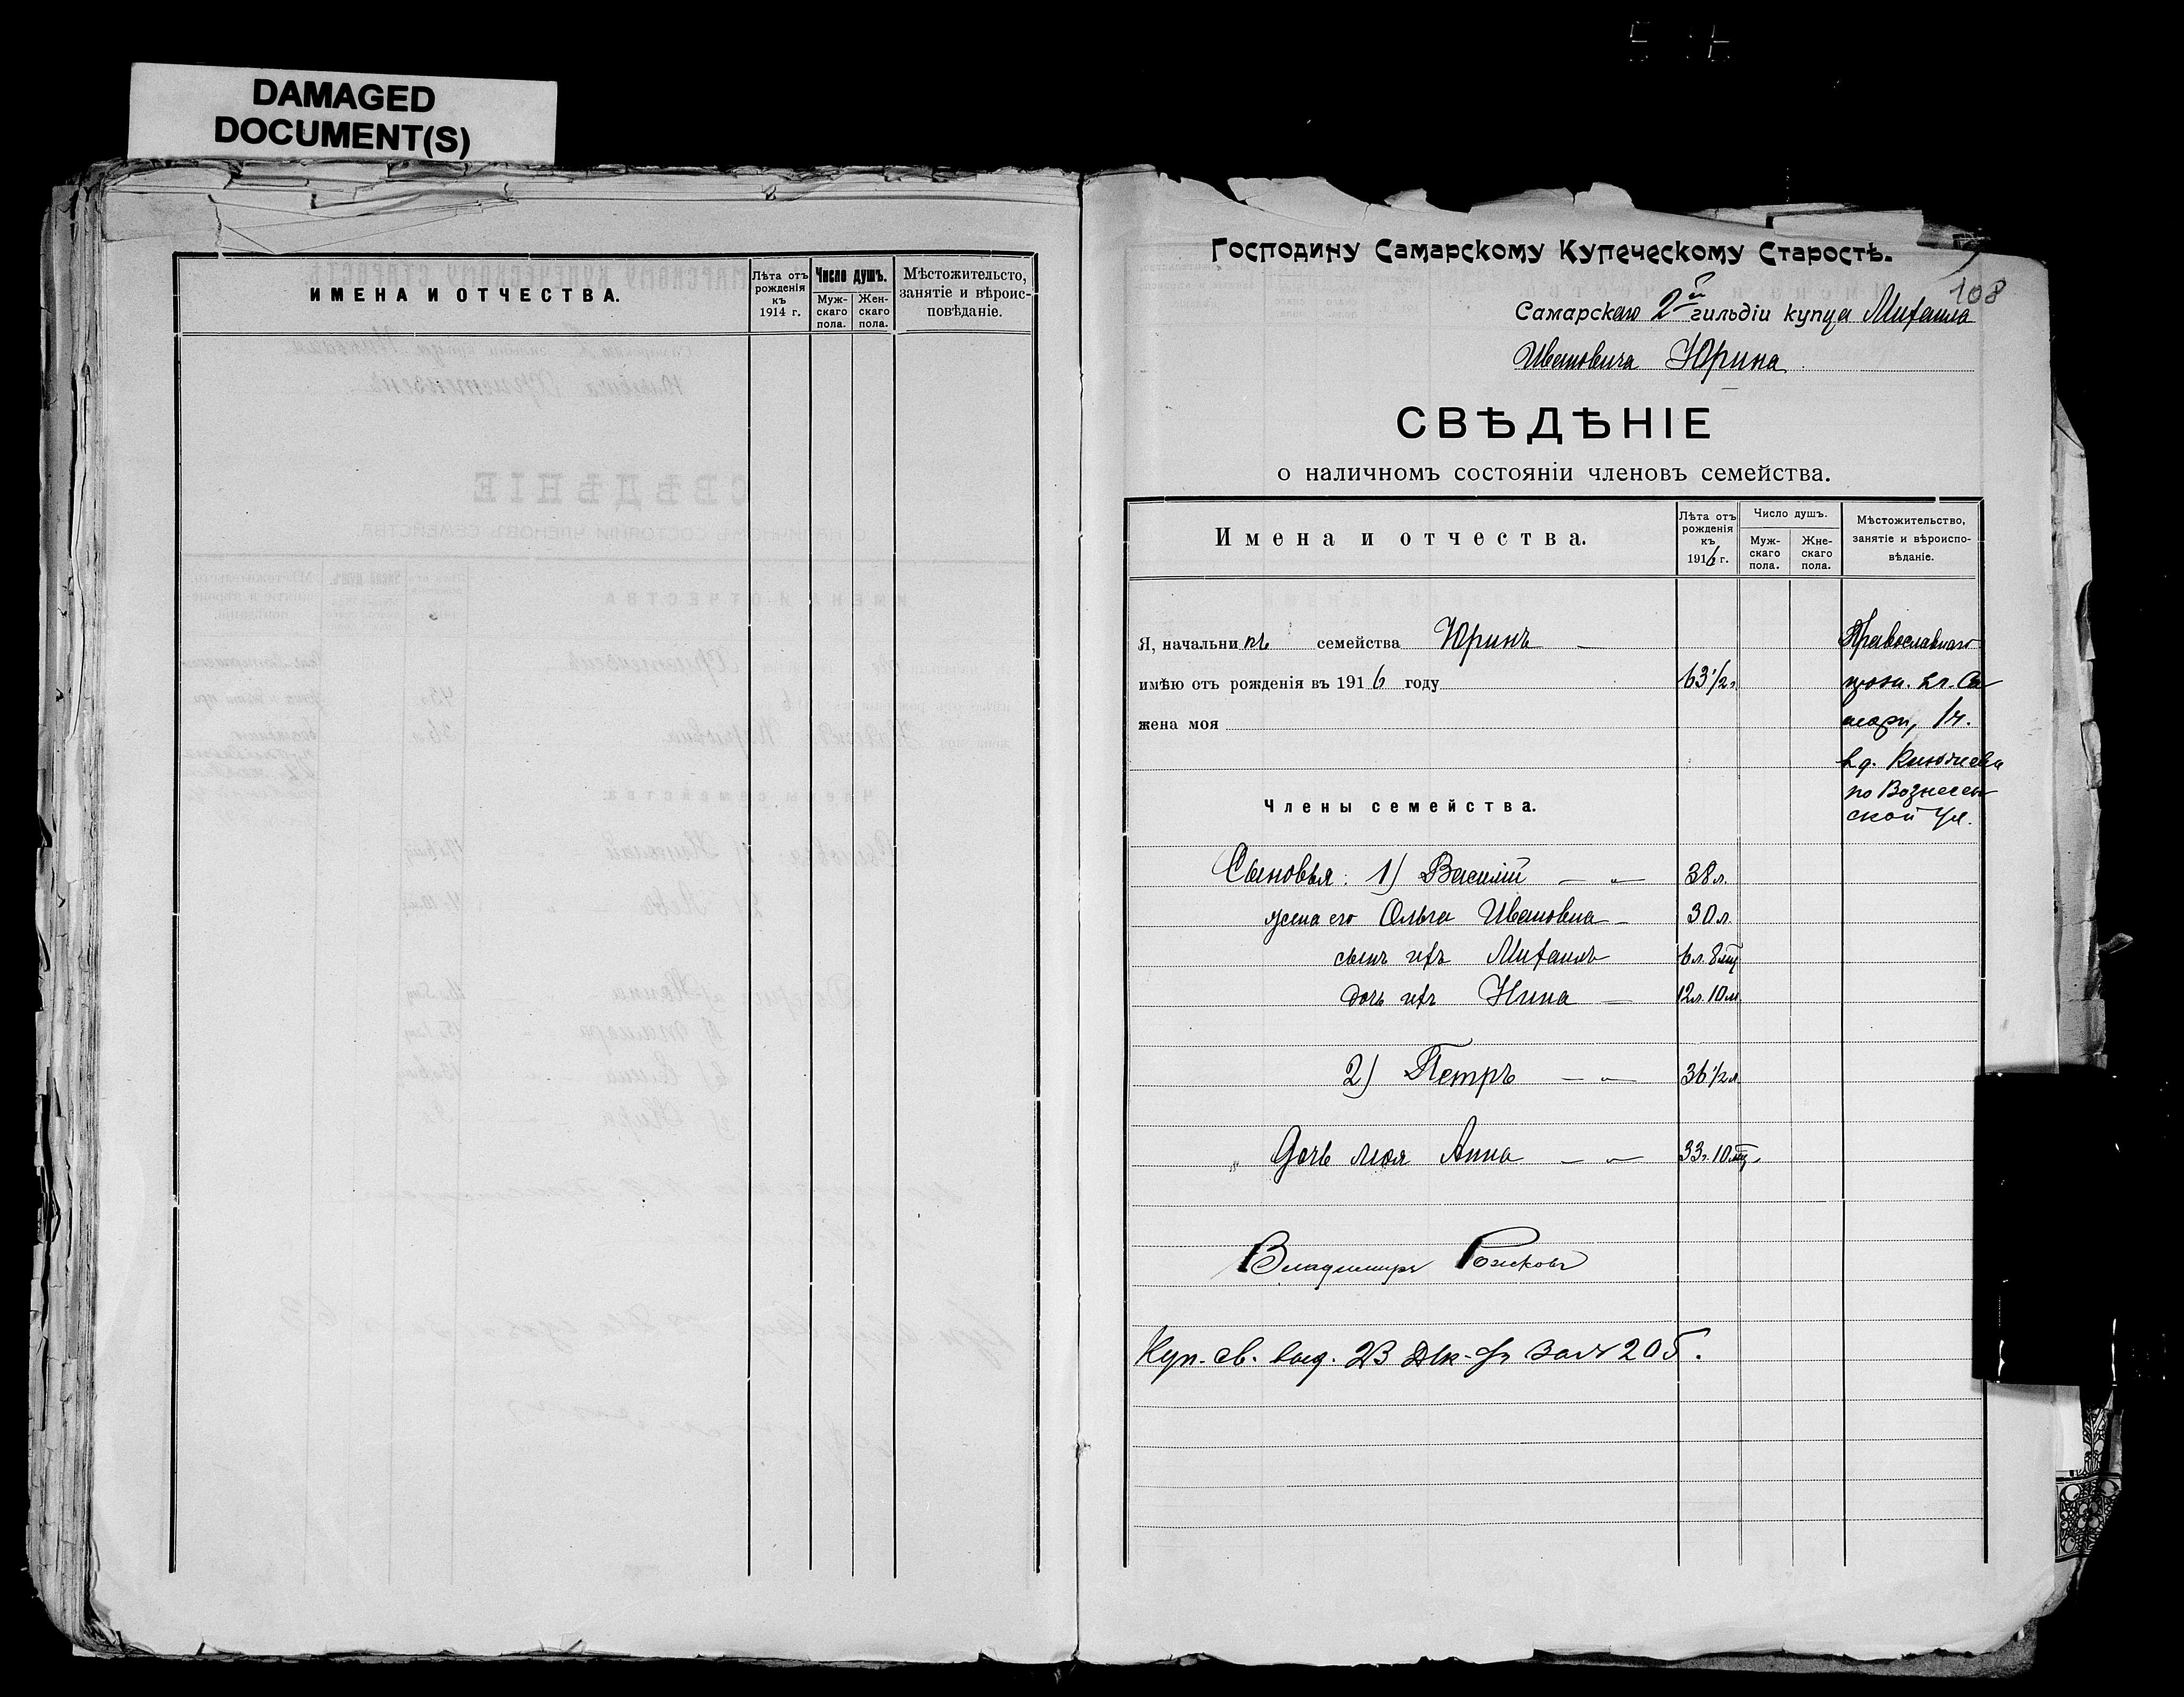 DAMAGED
DOCUMENT(S)
ИМЕНА И ОТЧЕСТВА.
Лѣта отъ рожденія къ 1914 г.
Число душъ.
Муж-скаго пола.
Жен-скаго пола.
Мѣстожительсто,
занятіе и вѣроис-
повѣданіе.
Господину Самарскому Купеческому Старостѣ.
108
Самарскаго 2й гильдіи купца Михаила
Ивановича Юрина
СВѢДѢНІЕ
о наличномъ состояніи членовъ семейства.
Имена и отчества.
Лѣта отъ рожденія къ 1916 г.
Число душъ.
Муж-скаго пола.
Жне-скаго пола.
Мѣстожительство,
занятіе и вѣроиспо-
вѣданіе.
Я, начальникъ семейства Юринъ — Православнаго
имѣю отъ рожденія въ 1916 году 63 1/2 г. прож. въ г. Са
жена моя маръ, 1ч.
въ д.
Члены семейства. по Вознесен
ской ул.
Сыновья: 1) Василій — „ — 38 л.
жена его Ольга Ивановна — 30 л.
сынъ ихъ Михаилъ 6 л. 8 мц
дочь ихъ Нина — 12 л. 10 м
2) Петръ — „ — 36 1/2 л
„ Дочь моя Анна — „ — 33 г. 10 мц.
Владимиръ Рожковъ
Куп. св. выд. 23 Дек. за № 205.